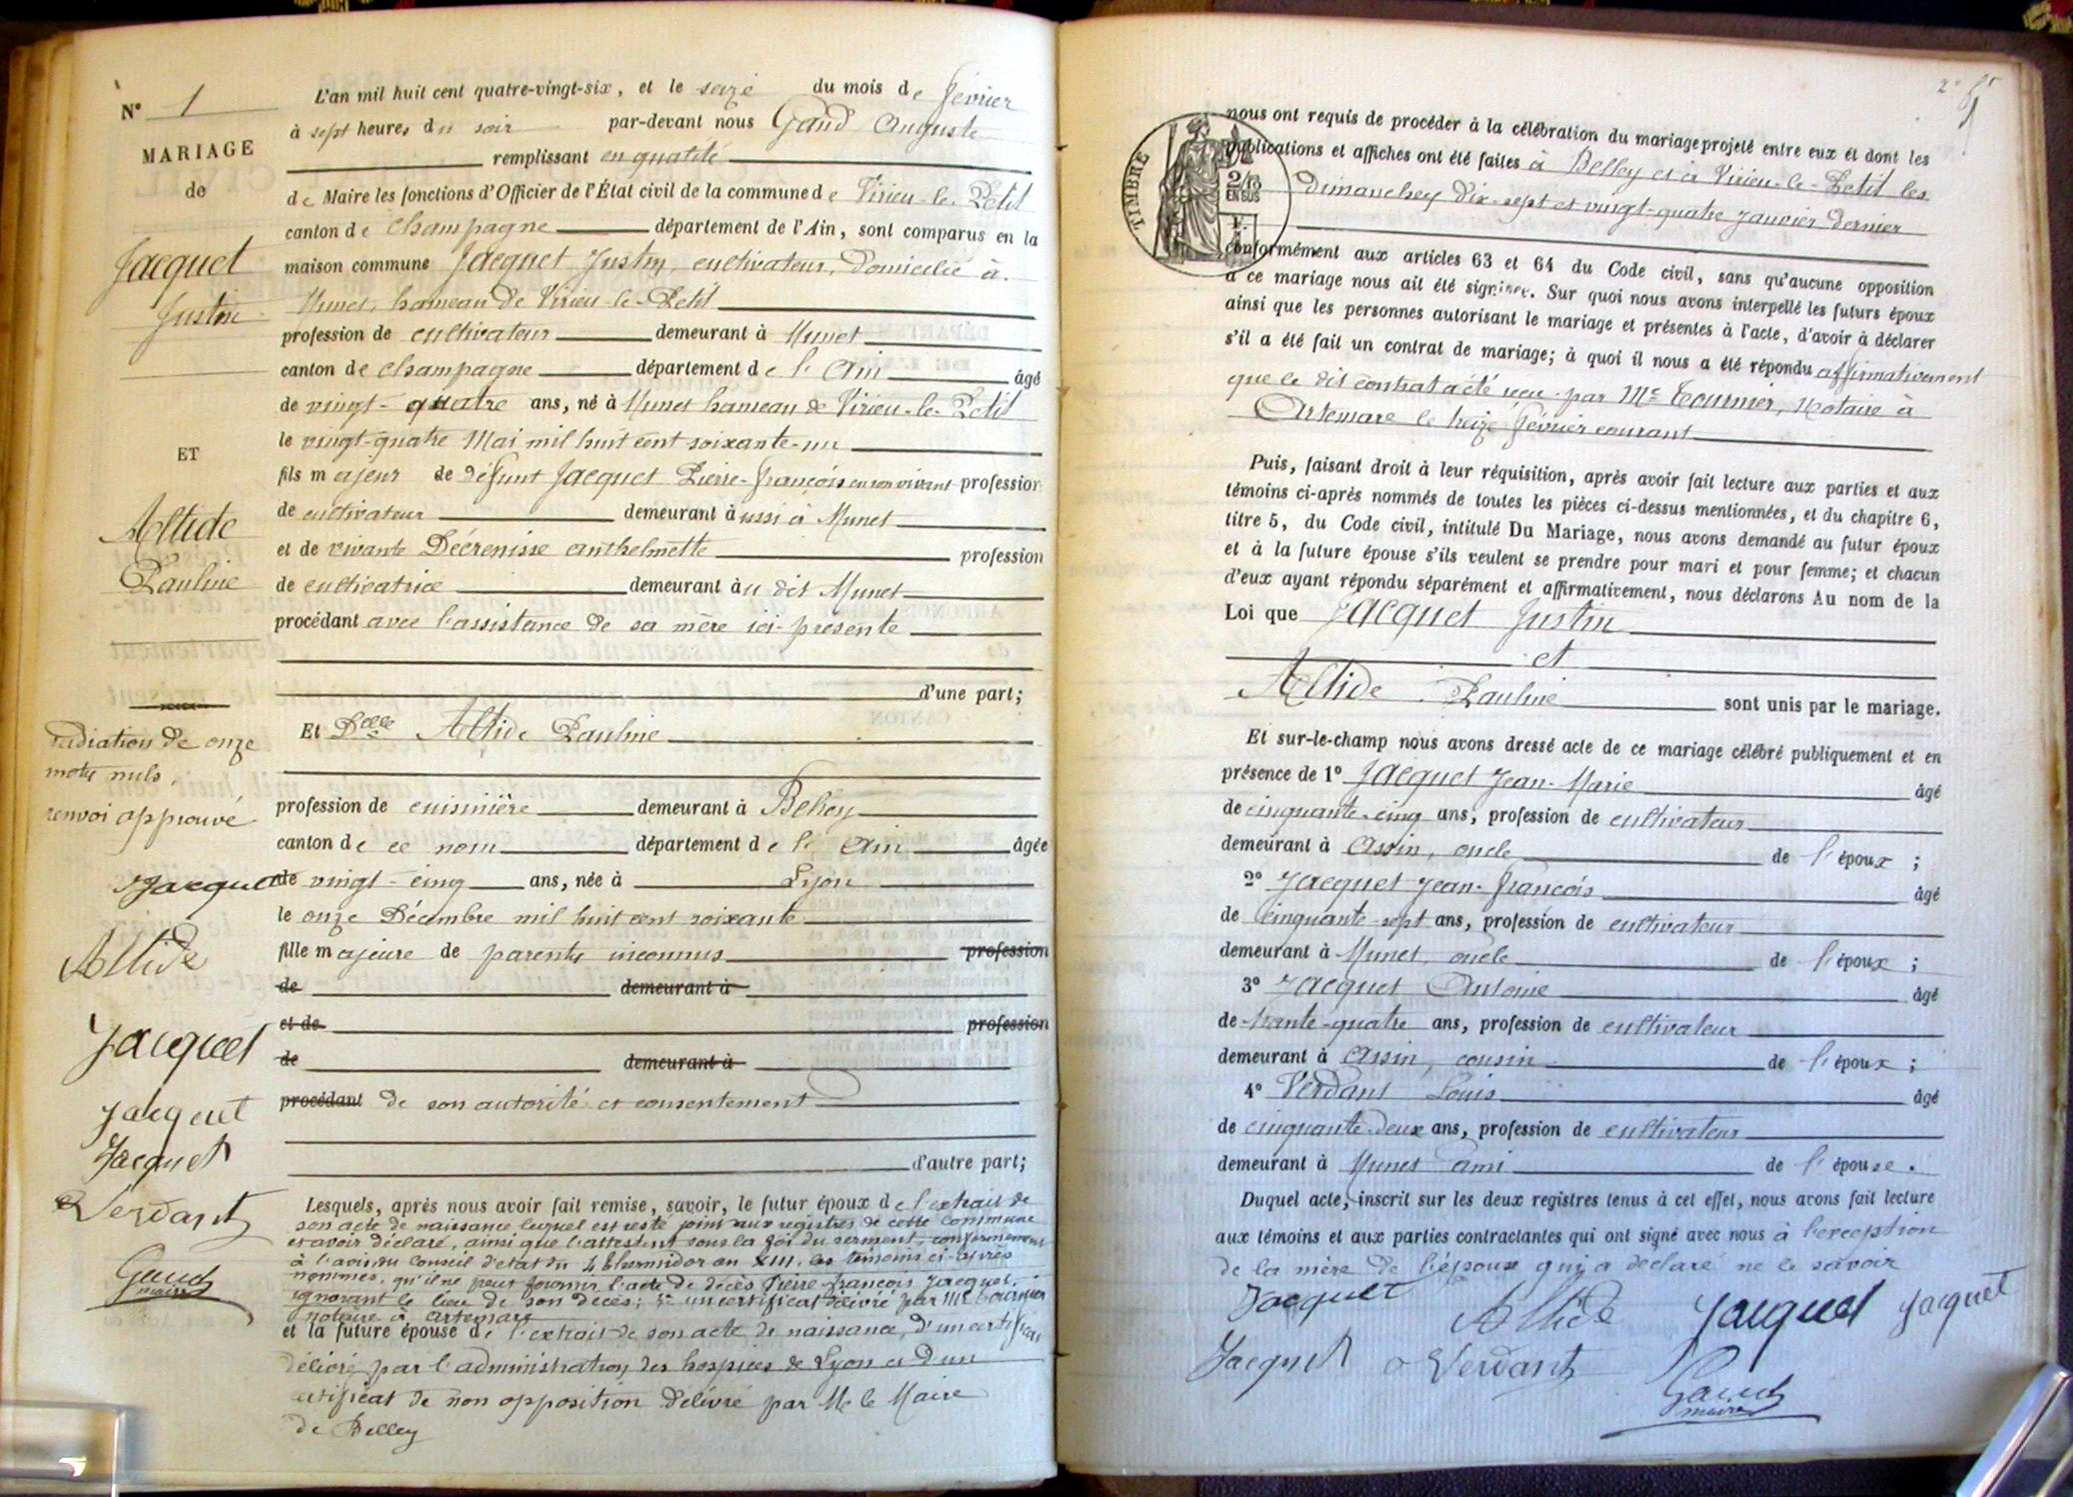 N° 1
MARIAGE
de
Jacquet
Justin
ET
Altide
Pauline
radiation de onze
mots nuls.
renvoi approuvé
Jacquet
Altide
Jacquet
Jacquet
Jacquet
Verdant
Gaud
maire
L'an mil huit cent quatre-vingt-six, et le seize du mois de février
à sept heures du soir par-devant nous Gaud Auguste
remplissant en qualité
de Maire les fonctions d'Officier de l'État civil de la commune de Virieu-le-Petit
canton de Champagne département de l'Ain, sont comparus en la
maison commune Jacquet Justin, cultivateur, domicilié à
Munet, hameau de Virieu-le-Petit
profession de cultivateur demeurant à Munet
canton de Champagne département de l'Ain âgé
de vingt-quatre ans, né à Munet hameau de Virieu-le-Petit
le vingt-quatre Mai mil huit cent soixante-un
fils majeur de défunt Jacquet Pierre-François en son vivant profession
de cultivateur demeurant aussi à Munet
et de vivante Décrenisse Anthelmette profession
de cultivatrice demeurant au dit Munet
procédant avec l'assistance de sa mère ici-présente
d'une part;
Et Delle Altide Pauline
profession de cuisinière demeurant à Belley
canton de ce nom département de l'Ain âgée
de vingt-cinq ans, née à Lyon
le onze Décembre mil huit cent soixante
fille majeure de parents inconnus profession
de demeurant à
et de profession
de demeurant à
procédant de son autorité et consentement
d'autre part;
Lesquels, après nous avoir fait remise, savoir, le futur époux de l'extrait de
son acte de naissance lequel est resté joint aux registres de cette commune
et avoir déclaré, ainsi que l'attestent sous la foi du serment, conformément
à l'avis du Conseil d'état du 4 thermidor an XIII, les témoins ci-après
nommés, qu'il ne peut fournir l'acte de décès Pierre-François Jacquet,
ignorant le lieu de son décès; un certificat délivré par Me Tournier
notaire à Artemare
et la future épouse de l'extrait de son acte de naissance, d'un certificat
délivré par l'administration des hospices de Lyon et d'un
certificat de non opposition délivré par M. le Maire
de Belley
TIMBRE
2/10
EN SUS
nous ont requis de procéder à la célébration du mariage projeté entre eux et dont les
publications et affiches ont été faites à Belley et à Virieu-le-Petit les
dimanches dix-sept et vingt-quatre janvier dernier
conformément aux articles 63 et 64 du Code civil, sans qu'aucune opposition
à ce mariage nous ait été signifiée. Sur quoi nous avons interpellé les futurs époux
ainsi que les personnes autorisant le mariage et présentes à l'acte, d'avoir à déclarer
s'il a été fait un contrat de mariage; à quoi il nous a été répondu affirmativement
que le dit contrat a été reçu par Me Tournier, Notaire à
Artemare le treize février courant
Puis, faisant droit à leur réquisition, après avoir fait lecture aux parties et aux
témoins ci-après nommés de toutes les pièces ci-dessus mentionnées, et du chapitre 6,
titre 5, du Code civil, intitulé Du Mariage, nous avons demandé au futur époux
et à la future épouse s'ils veulent se prendre pour mari et pour femme; et chacun
d'eux ayant répondu séparément et affirmativement, nous déclarons Au nom de la
Loi que Jacquet Justin
et
Altide Pauline sont unis par le mariage.
Et sur-le-champ nous avons dressé acte de ce mariage célébré publiquement et en
présence de 1° Jacquet Jean-Marie âgé
de cinquante-cinq ans, profession de cultivateur
demeurant à Assin, oncle de l'époux ;
2° Jacquet Jean-François âgé
de cinquante-sept ans, profession de cultivateur
demeurant à Munet, oncle de l'époux ;
3° Jacquet Antoine âgé
de trente-quatre ans, profession de cultivateur
demeurant à Assin, cousin de l'époux ;
4° Verdant Louis âgé
de cinquante-deux ans, profession de cultivateur
demeurant à Munet ami de l'épouse.
Duquel acte, inscrit sur les deux registres tenus à cet effet, nous avons fait lecture
aux témoins et aux parties contractantes qui ont signé avec nous à l'exception
de la mère de l'époux qui a déclaré ne le savoir
Jacquet Altide Jacquet Jacquet
Jacquet Verdant
Gaud
maire